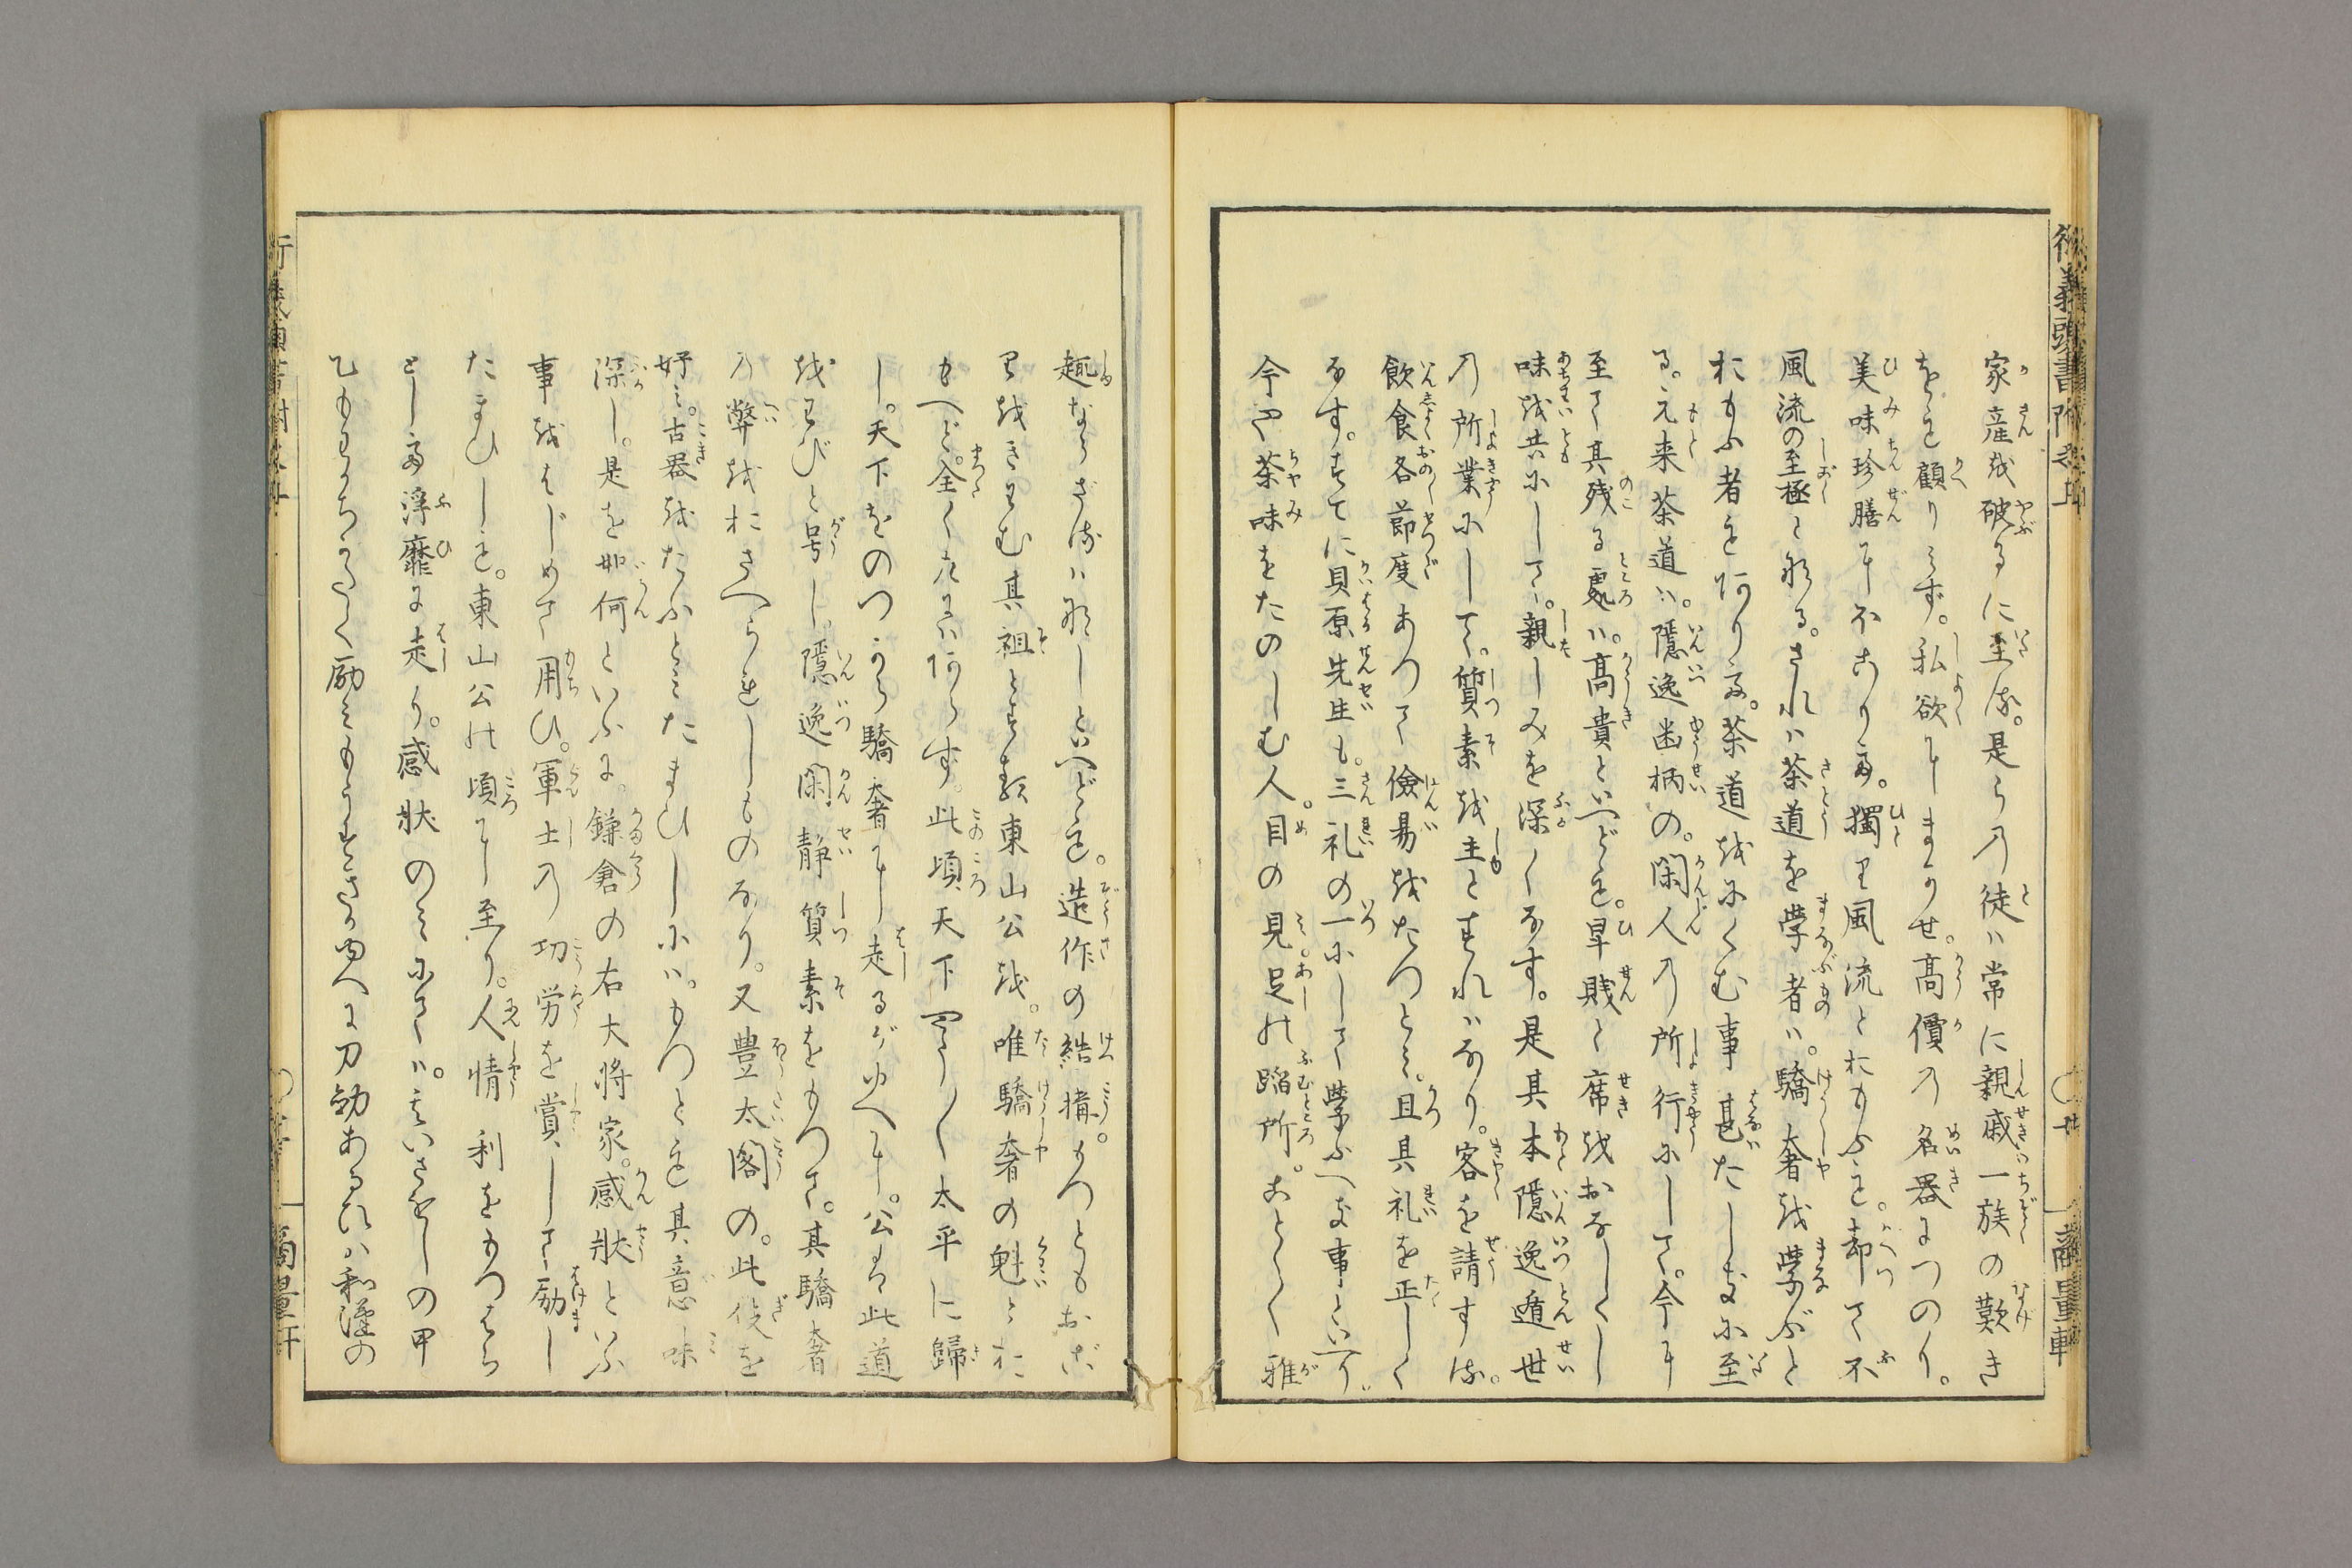 家産を破るに至る。是らの徒ハ常に親戚一族の歎き
をも顧りミず。私欲にまかせ。高價の名器につのり。
美味珍膳にほこりて。獨り風流とおもふも。却て不
風流の至極と成る。されハ茶道を学者ハ。驕奢を学ぶと
おもふ者もありて。茶道をにくむ事甚たしきに至
る。元来茶道ハ。隠逸幽栖の。閑人の所行にして。今に
至て其残る處ハ。高貴といへども。卑賤と席をおなしくし
味を共にして。親しみを深くなす。是其本隠逸遁世
の所業にして。質素を主とすれハなり。客を請する。
飲食各節度あつて儉易をたつとミ。且其礼を正しく
なす。すてに貝原先生も。三礼の一にして学ふへき事といへり
今や茶味をたのしむ人。目の見。足の蹈所。ことく雅
趣ならざるハなしといへども。造作の結構。もつともおご
りをきわむ其祖とする東山公を。唯驕奢の魁とお
もへど。全くしかにハあらず。此頃天下やうく太平に歸
し。天下をのつから驕奢に走るがゆへに。公は此道
をゑらびと号し。隠逸閑静質素をもつて。其驕奢
の弊をおさへられしものなり。又豊太閤の。此伎を
好ミ。古器をたふとミたまひしにハ。もつとも其意味
深し。是を如何といふに。鎌倉の右大将家。感状といふ
事をはじめて用ひ。軍士の功労を賞して励し
たまひしも。東山公の頃に至り。人情利をもつはら
として浮靡に走り。感状のミにてハ。さいさをしの甲
刀劔あるひハ和漢の